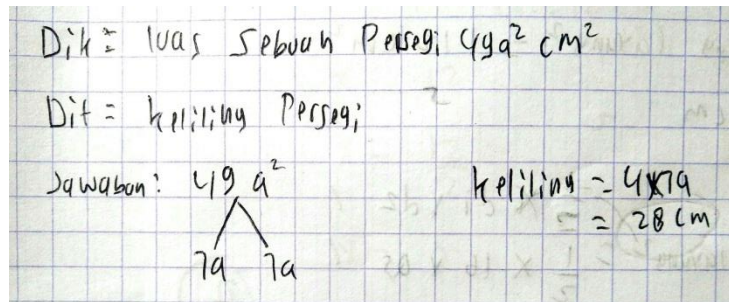 Dik = luas sebuah Persegi 49a² cm²
Dit = keliling Persegi
Jawaban: 49 a²
7a 7a
keliling = 4x7a
= 28 cm